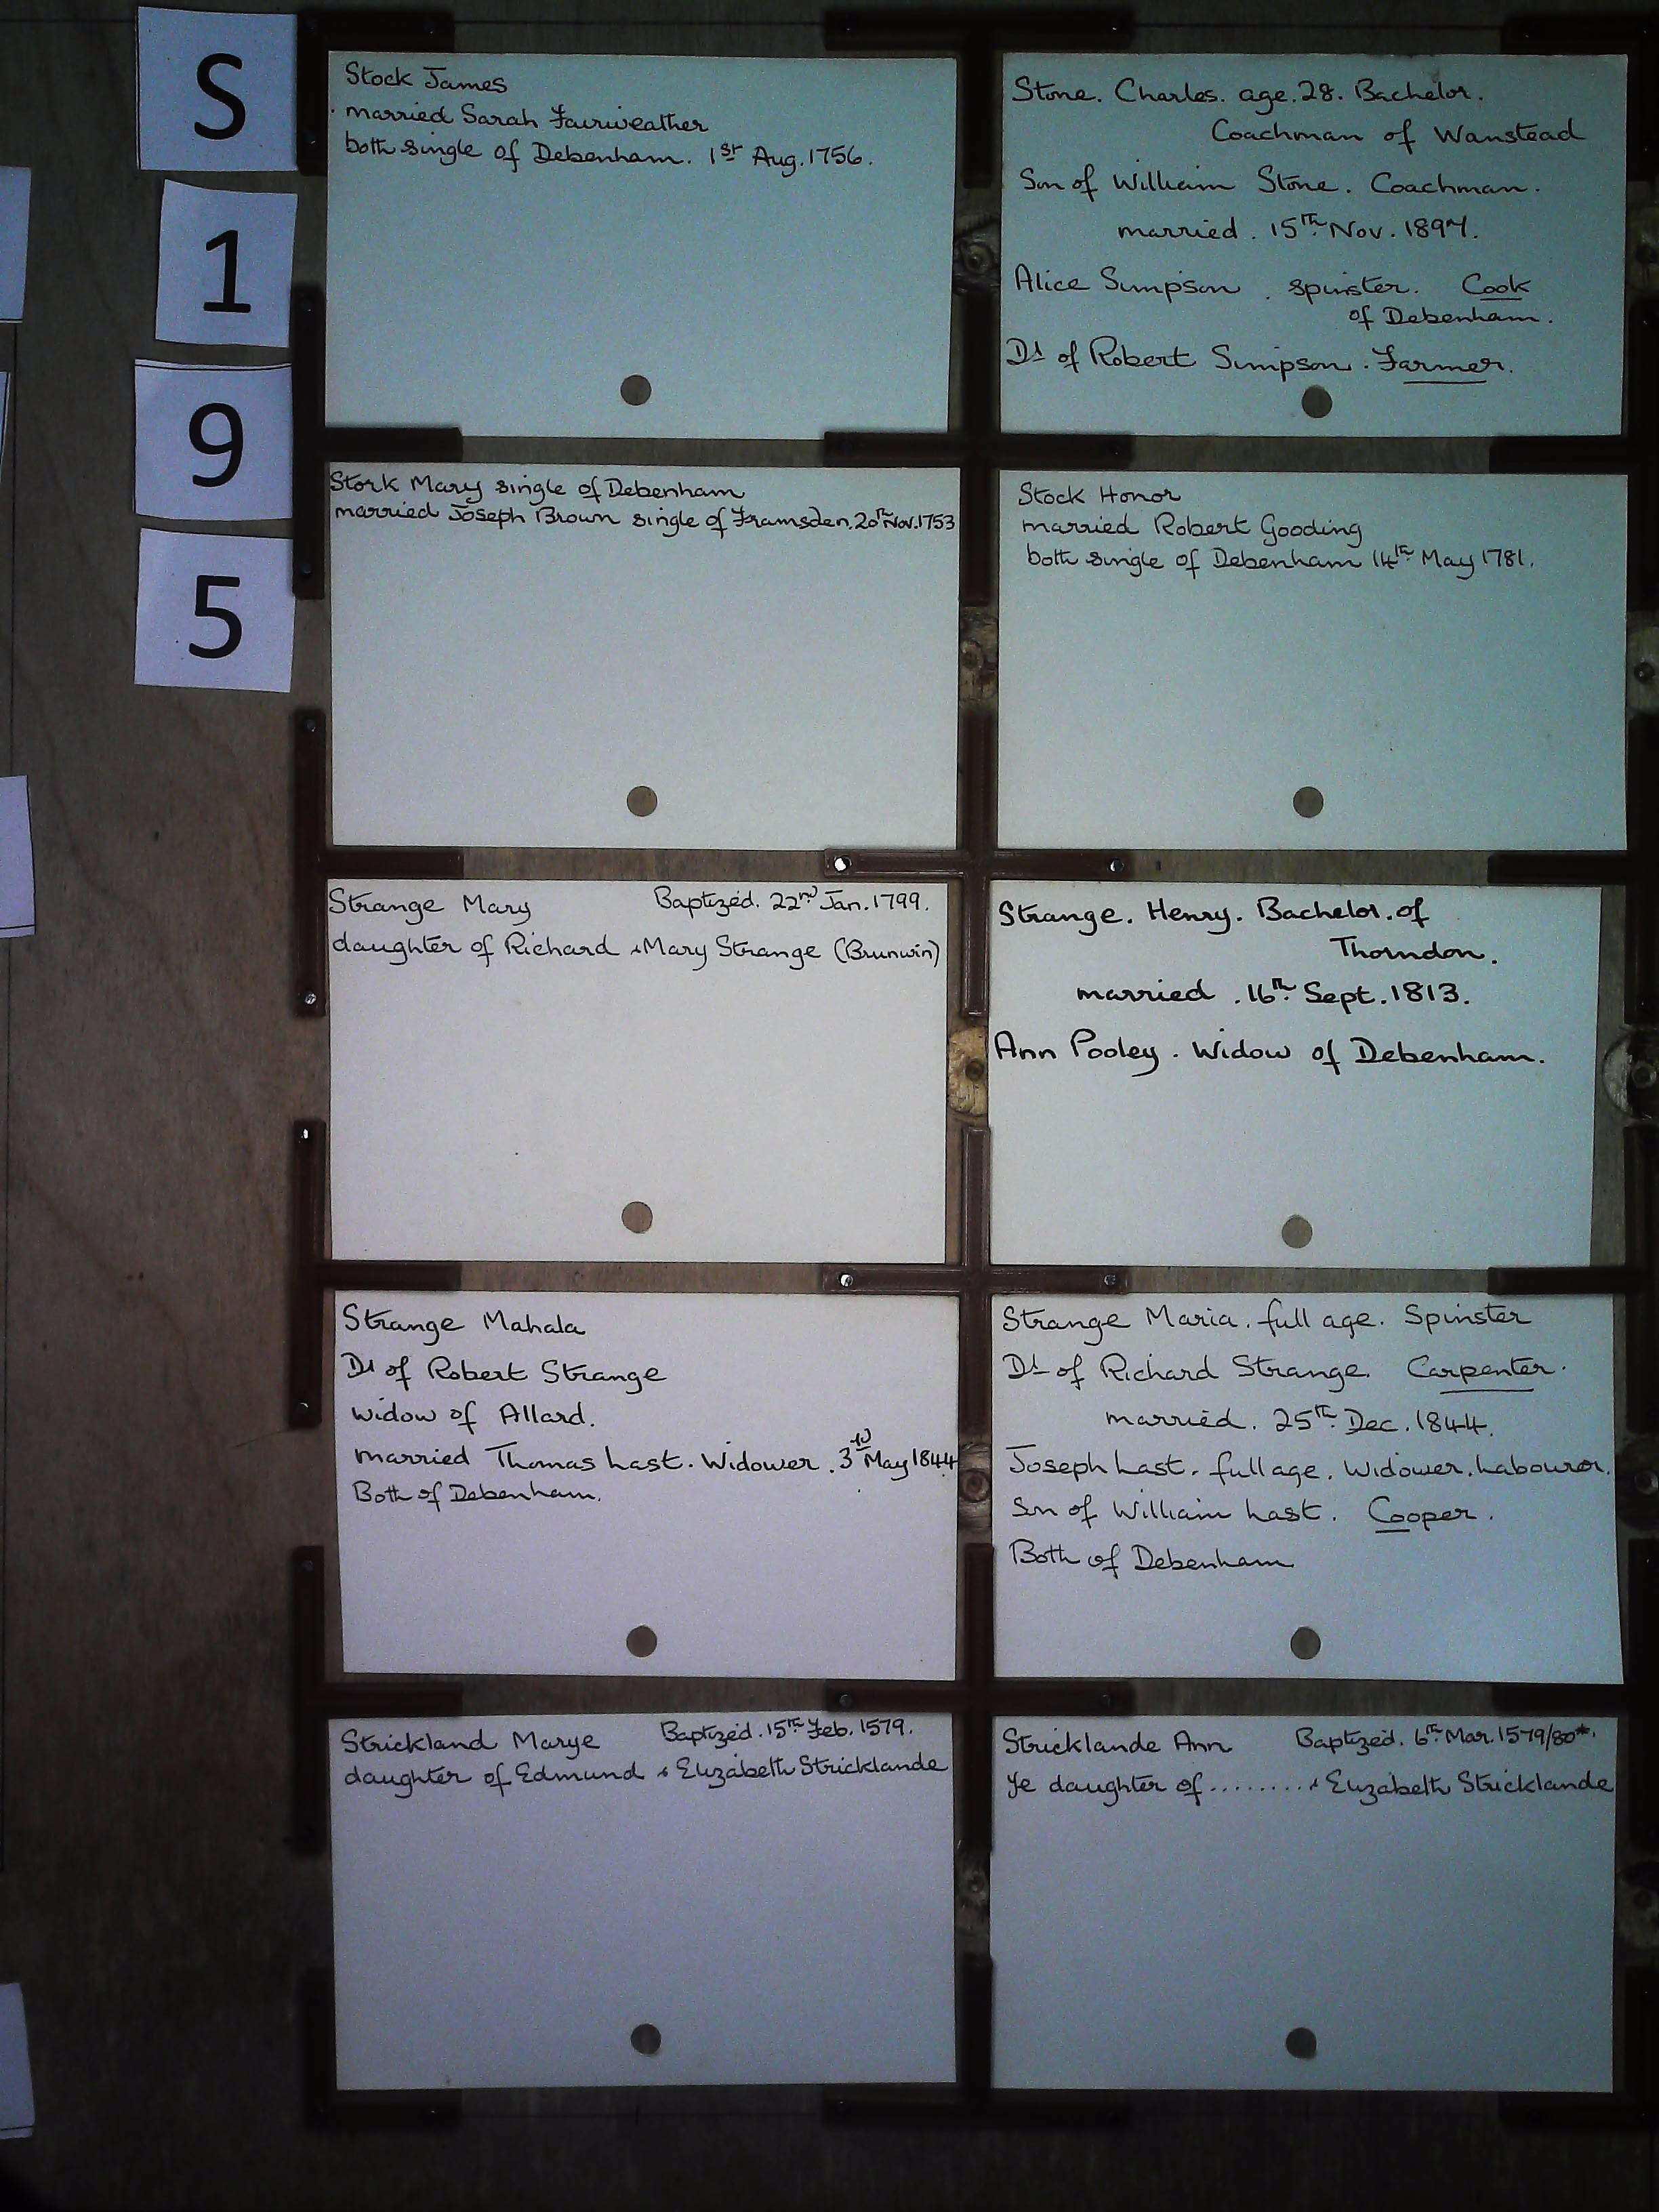 S
1
9
5
Stock James
married Sarah Fairweather
both single of Debenham. 1st Aug. 1756.
Stone. Charles. age. 28. Bachelor.
Coachman of Wanstead
Son of William Stone. Coachman.
married. 15th Nov. 1897.
Alice Simpson. spinster. Cook
of Debenham.
Dt of Robert Simpson. Farmer.
Stork Mary single of Debenham
married Joseph Brown single of Framsden. 20th Nov. 1753
Stock Honor
married Robert Gooding
both single of Debenham 14th May 1781.
Strange Mary Baptized. 22nd Jan. 1799.
daughter of Richard & Mary Strange (Brunwin)
Strange. Henry. Bachelor. of
Thorndon.
married. 16th Sept. 1813.
Ann Pooley. Widow of Debenham.
Strange Mahala
Dt of Robert Strange
widow of Allard.
married Thomas Last. Widower. 3rd May 1844
Both of Debenham.
Strange Maria. full age. Spinster
Dt of Richard Strange. Carpenter.
married. 25th Dec. 1844.
Joseph Last. full age. Widower. Labourer.
Son of William Last. Cooper.
Both of Debenham
Strickland Marye Baptized. 15th Feb. 1579.
daughter of Edmund & Elizabeth Stricklande
Stricklande Ann Baptized. 6th Mar. 1579/80*.
Ye daughter of ......... & Elizabeth Stricklande